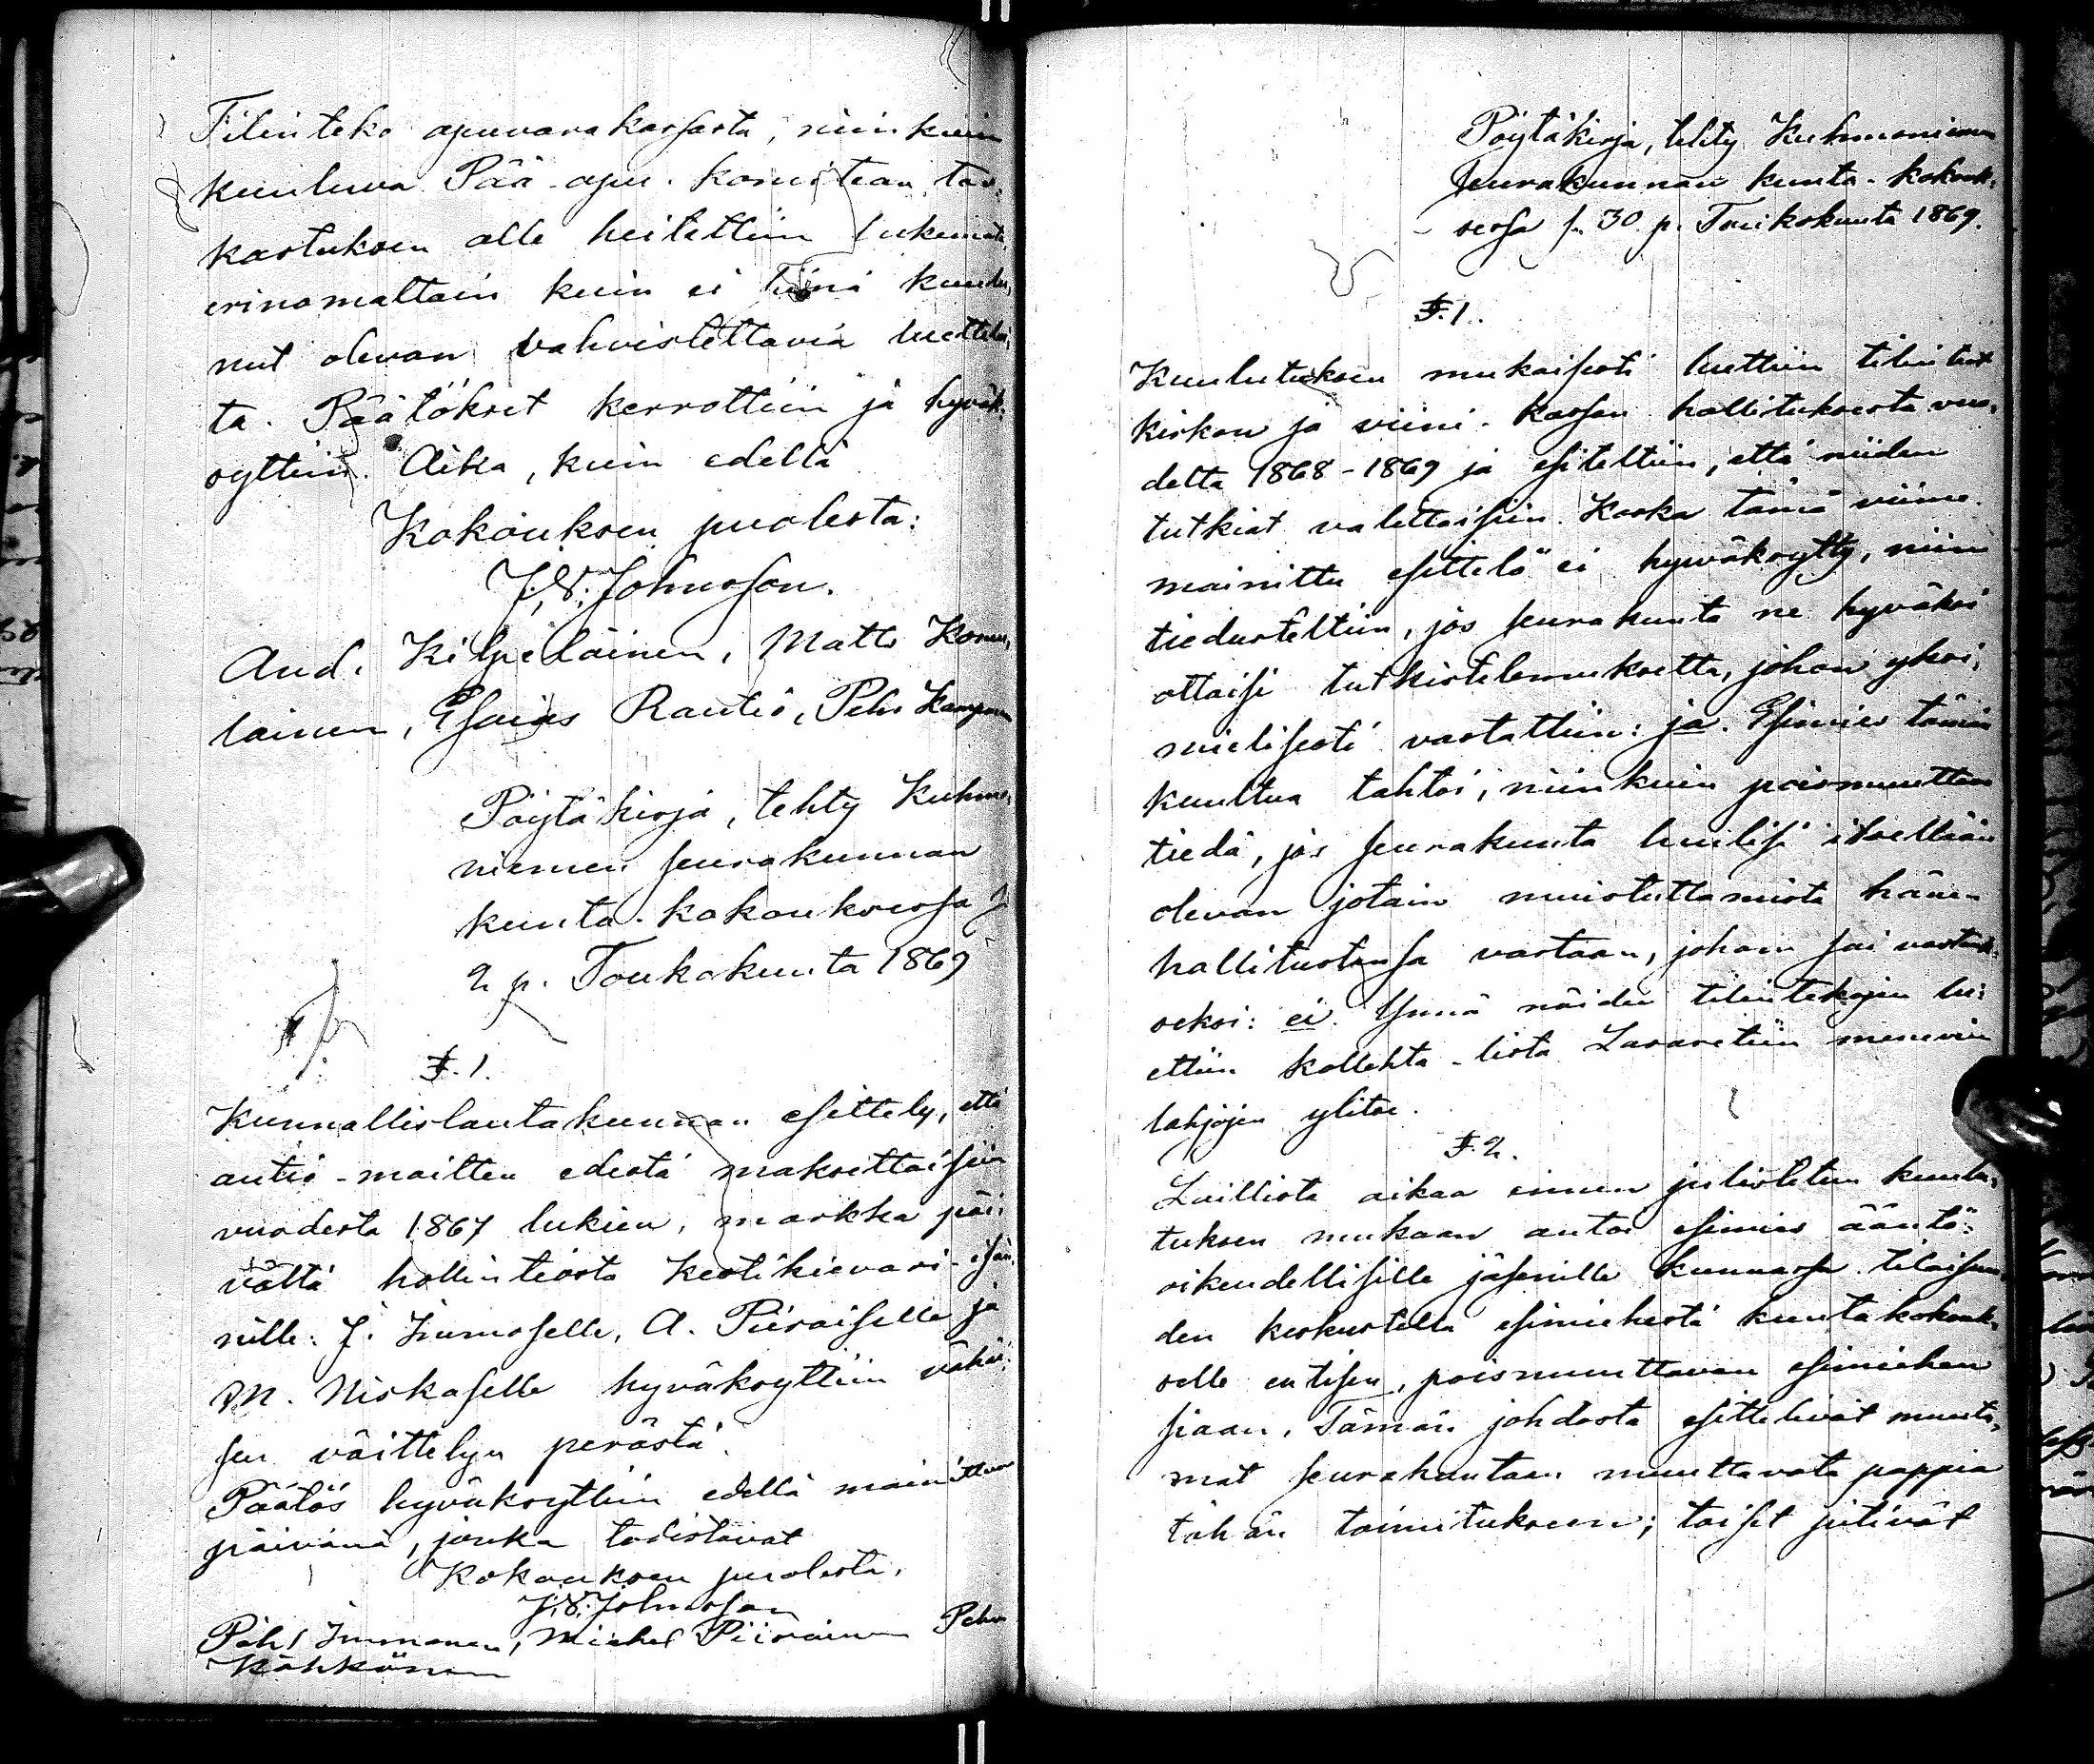 Tilinteko apuvarakassasta, niinkuin
kuuluva Pää-apu. komitean tar,
kastuksen alle heitettiin lukemata,
erinomattain kuin ei tiinä kuulu,
nut olevan vahvistettavia luetteloi,
ta. Päätökset kerrottiin ja hyväk,
syttiin. Aika, kuin edellä
Kokouksen puolesta:
J. V. Johnsson.
And. Kilpeläinen, Matts Kornu,
lainen, Esaias Rautio, Pehr Kamp
Pöytäkirja, tehty Kuhmo,
niemen seurakunnan
kunta-kokouksessa
2 p. Toukokuuta 1869
§. 1.
Kunnallislautakunnan esittely, että
autio-maitten edestä maksettaisiin
vuodesta 1867 lukien, markka päi,
vältä hollin teosta Kestikievari-isän,
nille: J. Immoselle, A. Piiraiselle ja
M. Niskaselle hyväksyttiin vähäi,
sen väittelyn perästä.
Päätös hyväksyttiin edellä mainittuna
päivänä, jonka todistavat
Kokouksen puolesta,
J. V. Johnsson
Påhl Immonen, Michel Piirainen Pehr
Kähkönen
Pöytäkirja, tehty Kuhmoniemen
Seurakunnan kunta-kokouk,
sessa s. 30 p. Toukokuuta 1869.
§. 1.
Kuulutuksen mukaisesti luettiin tilinteot
kirkon ja viini-kassan hallituksesta vuo,
delta 1868-1869 ja esiteltiin, että niiden
tutkiat valittaisiin. Koska tämä viime
mainittu esittelö ei hyväksytty, niin
tiedusteltiin, jos seurakunta ne hyväksi
ottaisi tutkistelemuksetta, johon yksi,
mielisesti vastattiin: ja. Esimies tämän
kuultua tahtoi, niinkuin poismuuttava
tiedä, jos seurakunta luulisi itsellään
olevan jotain muistuttamista hänen
hallitustansa vastaan, johon sai vastauk,
seksi: ei. Ynnä näiden tilintekojen lu,
ettiin kollehta-lista Lasaretiin menevien
lahjojen ylitse.
§. 2.
Laillista aikaa ennen julistetun kuulu,
tuksen mukaan antoi esimies ääntö-
oikeudellisille jäsenille kunnassa tilaisuu,
den keskustella esimiehestä kuntakokouk,
selle entisen, poismuuttavan esimiehen
siaan. Tämän johdosta esittelivät muuta,
mat seurakuntaan muuttavata pappia
tähän toimitukseen; toiset pitivät